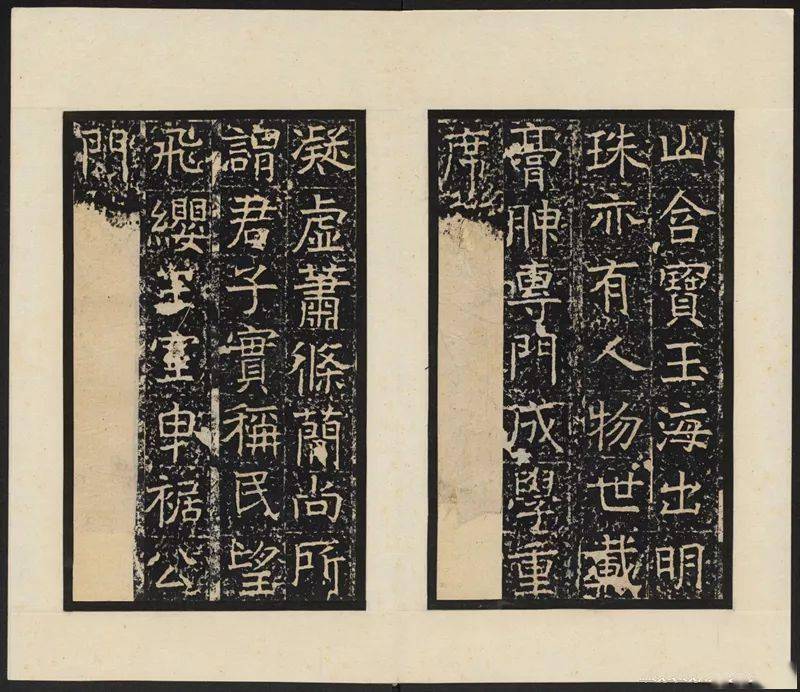 山含寶玉海出明
珠亦有人物世載
膏腴專門成學重
席
凝虛蕭條簡尚所
謂君子實稱民望
飛纓王室申裾公
門